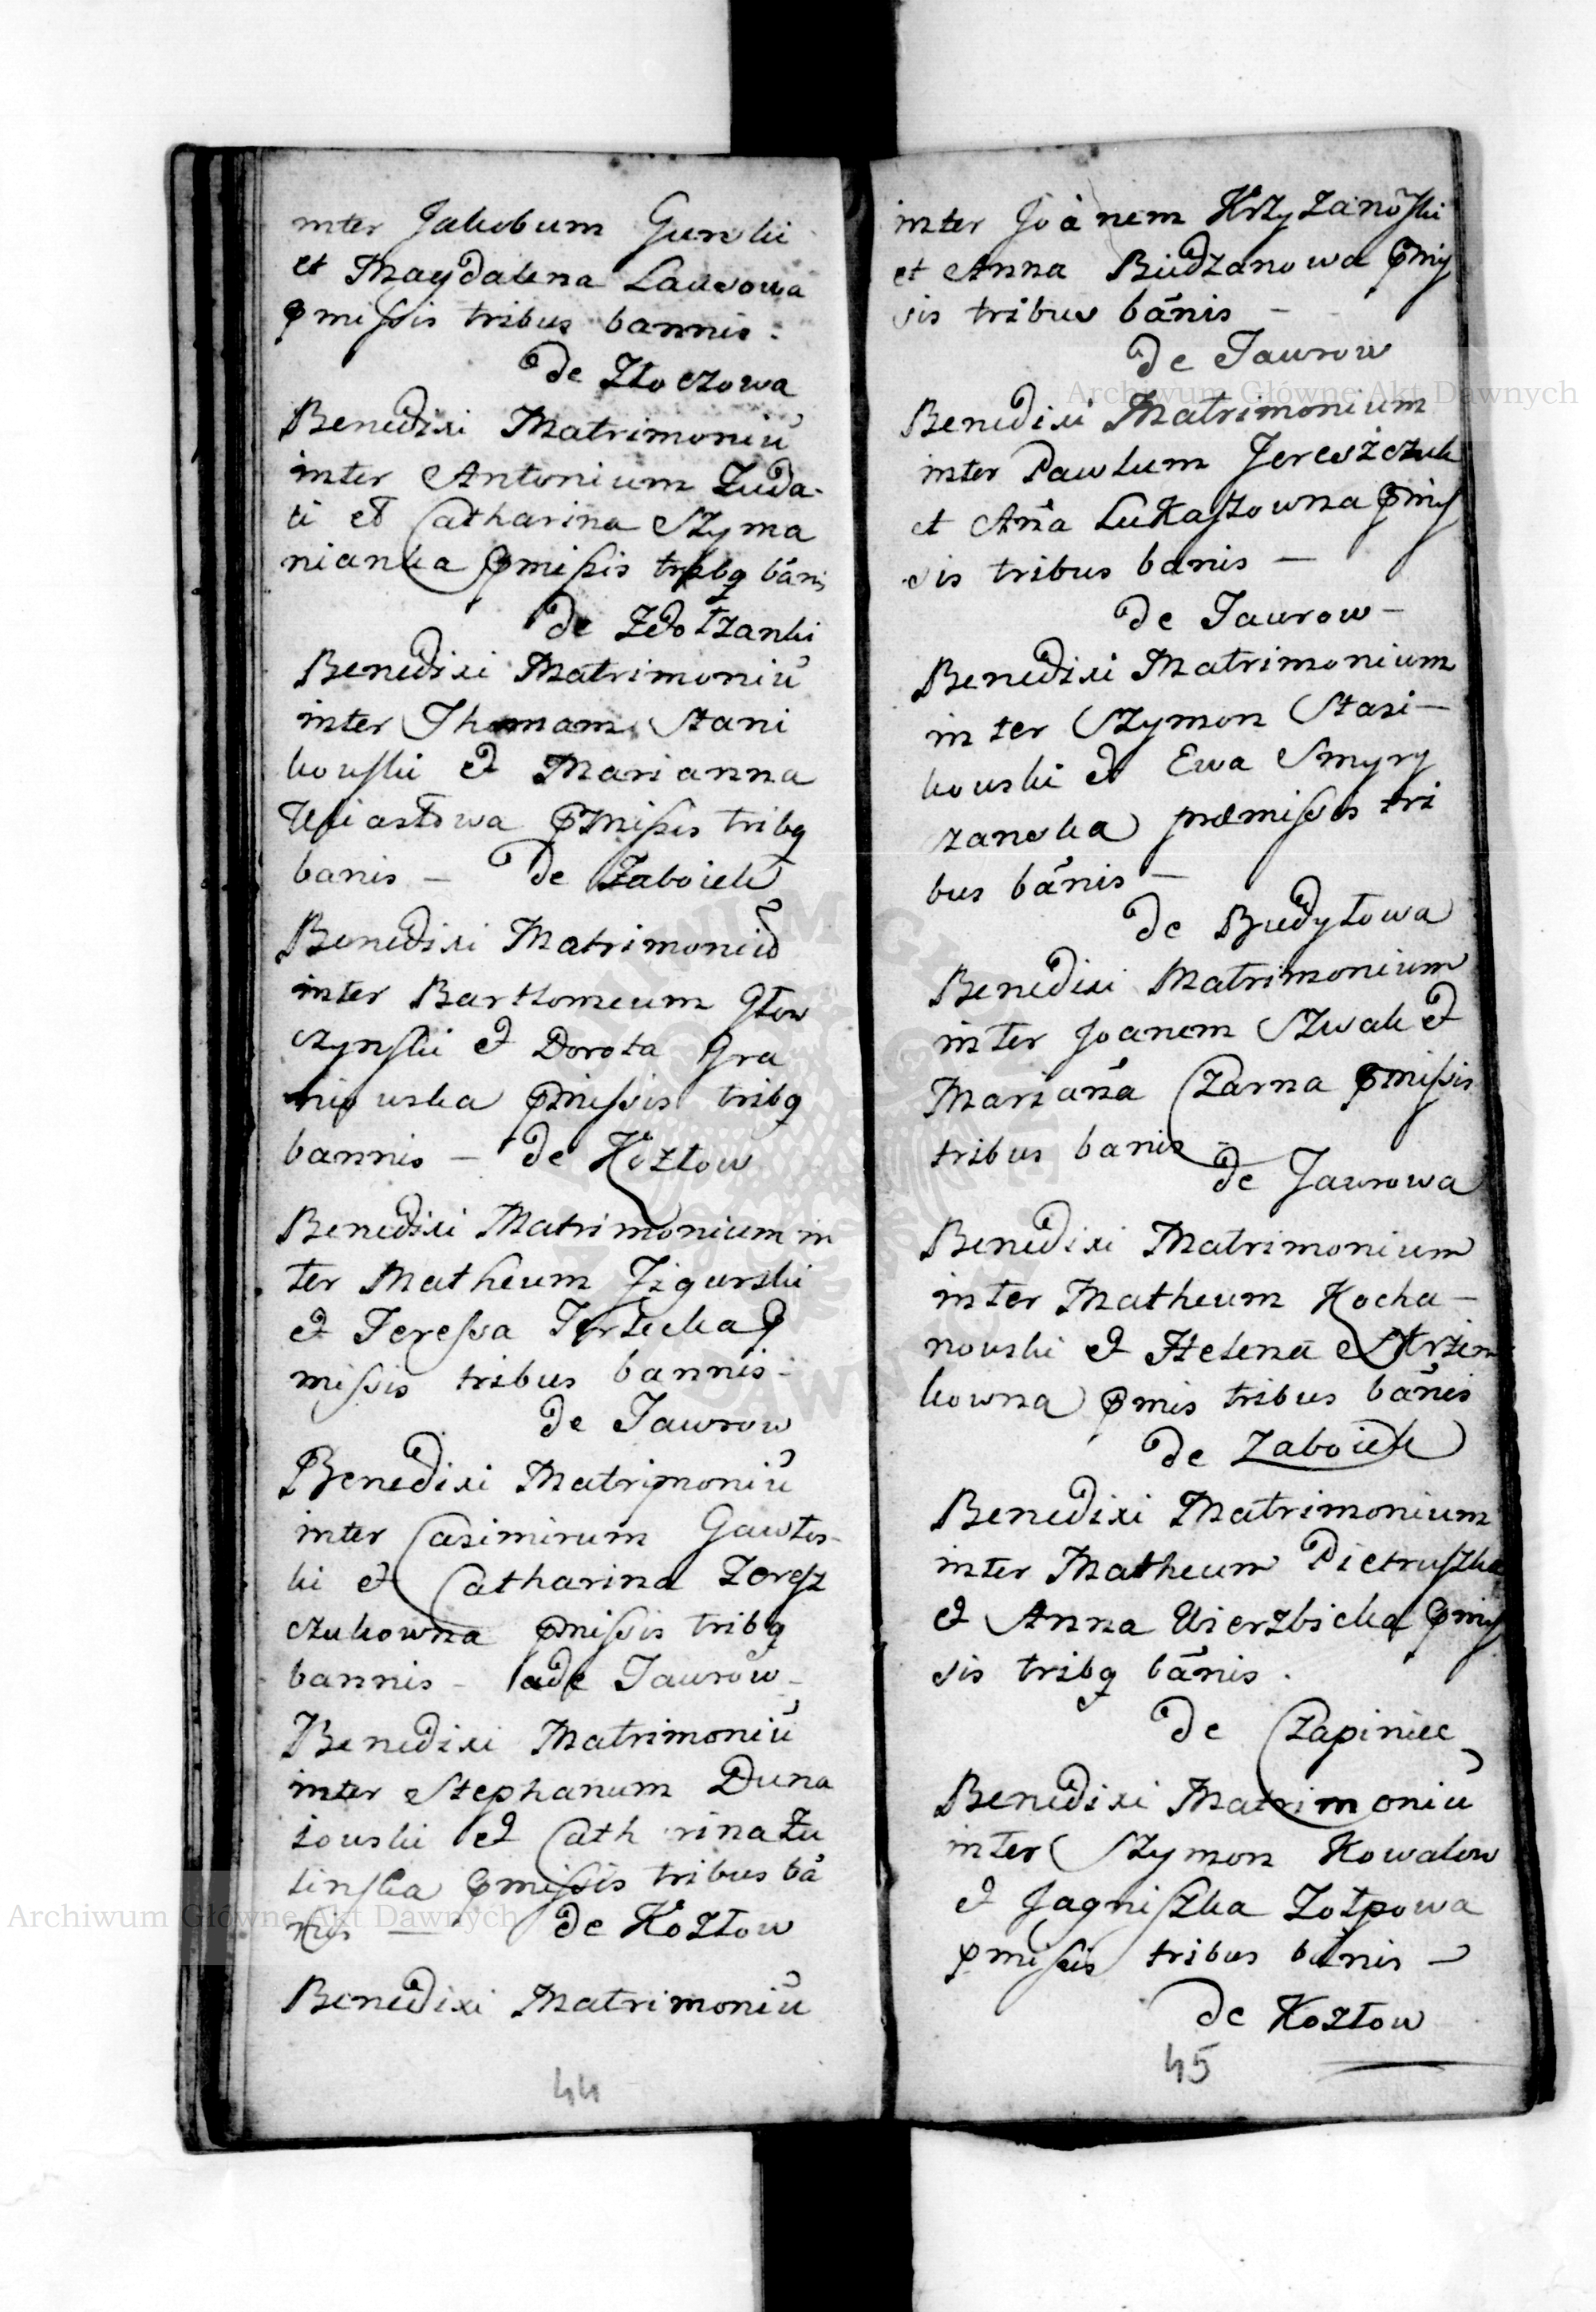 inter Jakobum Gurski
et Magdalena Lawsowa
pmissis tribus bannis:
de Złoczowa
Benedixi Matrimoniū
inter Antonium Zuda-
ti et Catharina Szyma
nianka pmissis tribq bānis
de Zdołżanki
Benedixi Matrimoniū
inter Thomam Stani
kouski et Marianna
pmissis tribq
banis – de Zaboiek
Benedixi Matrimoniū
inter Barthomeum Głow
czynski et Dorota Gra
pmissis tribq
bannis – de Kozłow
Benedixi Matrimonium in
ter Matheum Zigurski
et Teressa p
missis tribus bannis -
de Jawrow
Benedixi Matrimoniū
inter Casimirum Gawłos-
ki et Catharina Zeresz
czukowna pmissis tribq
bannis - de Taurow -
Benedixi Matrimoniū
inter Stephanum Duna
iouski et Cath rina Zu
linska pmissis tribus bā
nis — de Kozłow
Benedixi Matrimoniū
44
inter Joānem Krzyzanoski
et Anna Budzanowa pmis
sis tribus bānis -
de Taurow
Benedixi Matrimonium
inter Pawlum Jereszczuk
et Ana Lukaszowna pmis
sis tribus banis —
de Taurow -
Benedixi Matrimonium
inter Szymon Stasi-
kouski et Ewa Smyry
zanska præmissis tri
bus bānis —
de Budyłowa
Benedixi Matrimonium
inter Joanem Szwak et
Mariana Czarna pmissis
tribus banis -
de Jawrowa
Benedixi Matrimonium
inter Matheum Kocha-
nouski et Helenā
kowna pmis tribus bānis
de Zaboiek
Benedixi Matrimonium
inter Matheum Pietruszka
et Anna Wierzbicka pmis
sis tribq bānis.
de Czapiniec
Benedixi Matrimoniū
inter Szymon Kowalow
et Jagniszka Zołpowa
pmissis tribus bānis —
de Kozłow
45
Archiwum Główne Akt Dawnych
Archiwum Główne Akt Dawnych